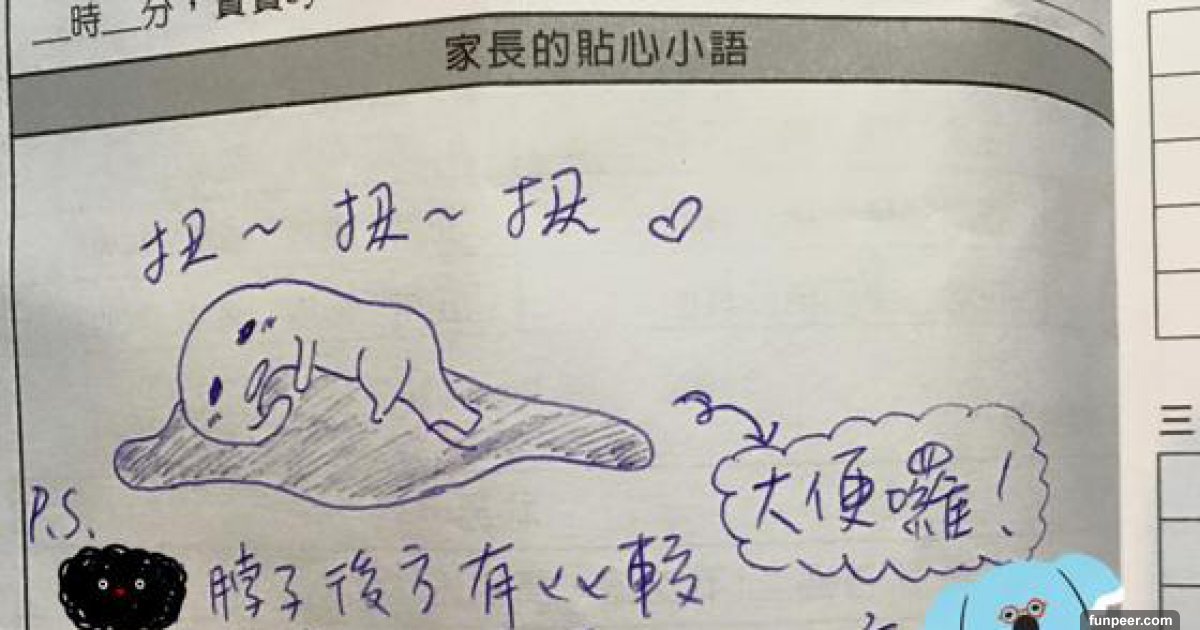 __時__分，寶寶
家長的貼心小語
扭~ 扭~ 扭♡
大便囉！
P.S.
脖子後方有比較
三
funpeer.com